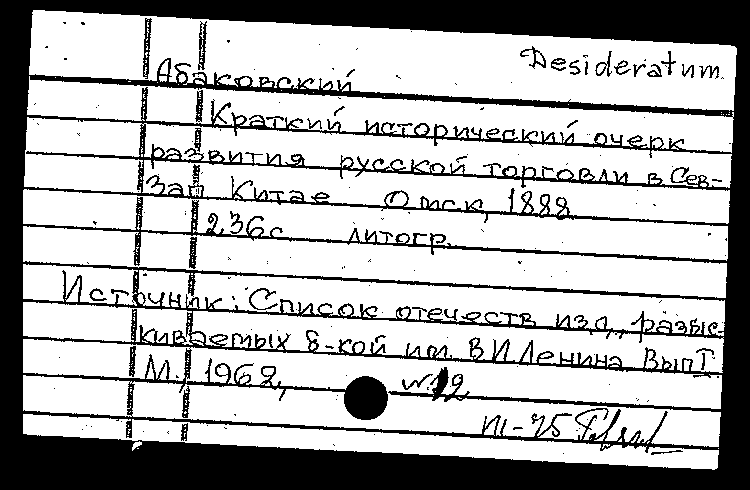 Desideratum
Абаковский
Краткий исторический очерк
развития русской торговли в Сев-
Зап Китае Омск, 1888
236с литогр.
Источник: Список отечеств изд., разыс-
киваемых б-кой им. В И Ленина Вып I
М., 1962, №12
III-75